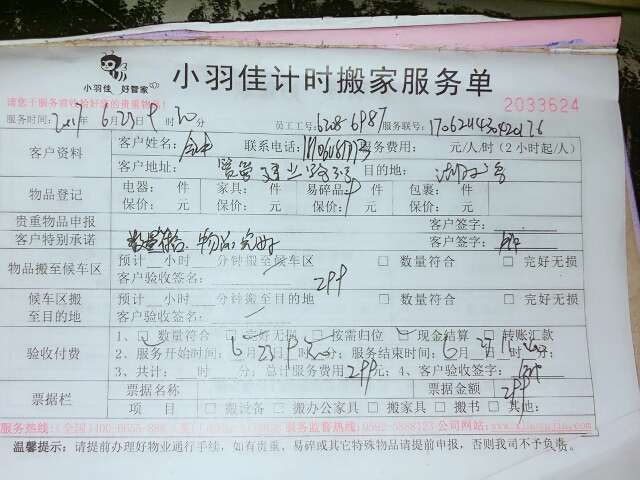 小羽佳 好管家
小羽佳计时搬家服务单
请您于服务前将验好您的贵重物品！
2033624
服务时间：2017年6月23日9时30分 员工工号：6208 6987 服务联号：
客户资料 客户姓名： 联系电话： 服务费用： 元/人/时（2小时起/人）
客户地址： 目的地：
物品登记 电器： 件 家具： 件 易碎品： 件 包裹： 件
保价： 元 保价： 元 保价： 元 保价： 元
贵重物品申报 客户签字：
客户特别承诺 数量符合、物品完好 客户签字：
物品搬至候车区 预计__小时__分钟搬至候车区 □ 数量符合 □ 完好无损
客户验收签名： 299
候车区搬至目的地 预计__小时__分钟搬至目的地 □ 数量符合 □ 完好无损
客户验收签名：
验收付费 1、□ 数量符合 □ 完好无损 □ 按需归位 □ 现金结算 □ 转账汇款
2、服务开始时间：6月23日9时30分；服务结束时间：6月23日11时 分；
3、共计： 时 分；总计服务费用299元；4、客户验收签字：
票据栏 票据名称 票据金额 299
项 目 □ 搬设备 □ 搬办公家具 □ 搬家具 □ 搬书 □ 其他：
服务热线：(全国)400-6655-888 服务监督热线：0592-5888123 公司网站：www.xiaoyujia.com
温馨提示：请提前办理好物业通行手续，如有贵重，易碎或其它特殊物品请提前申报，否则我司不予负责。